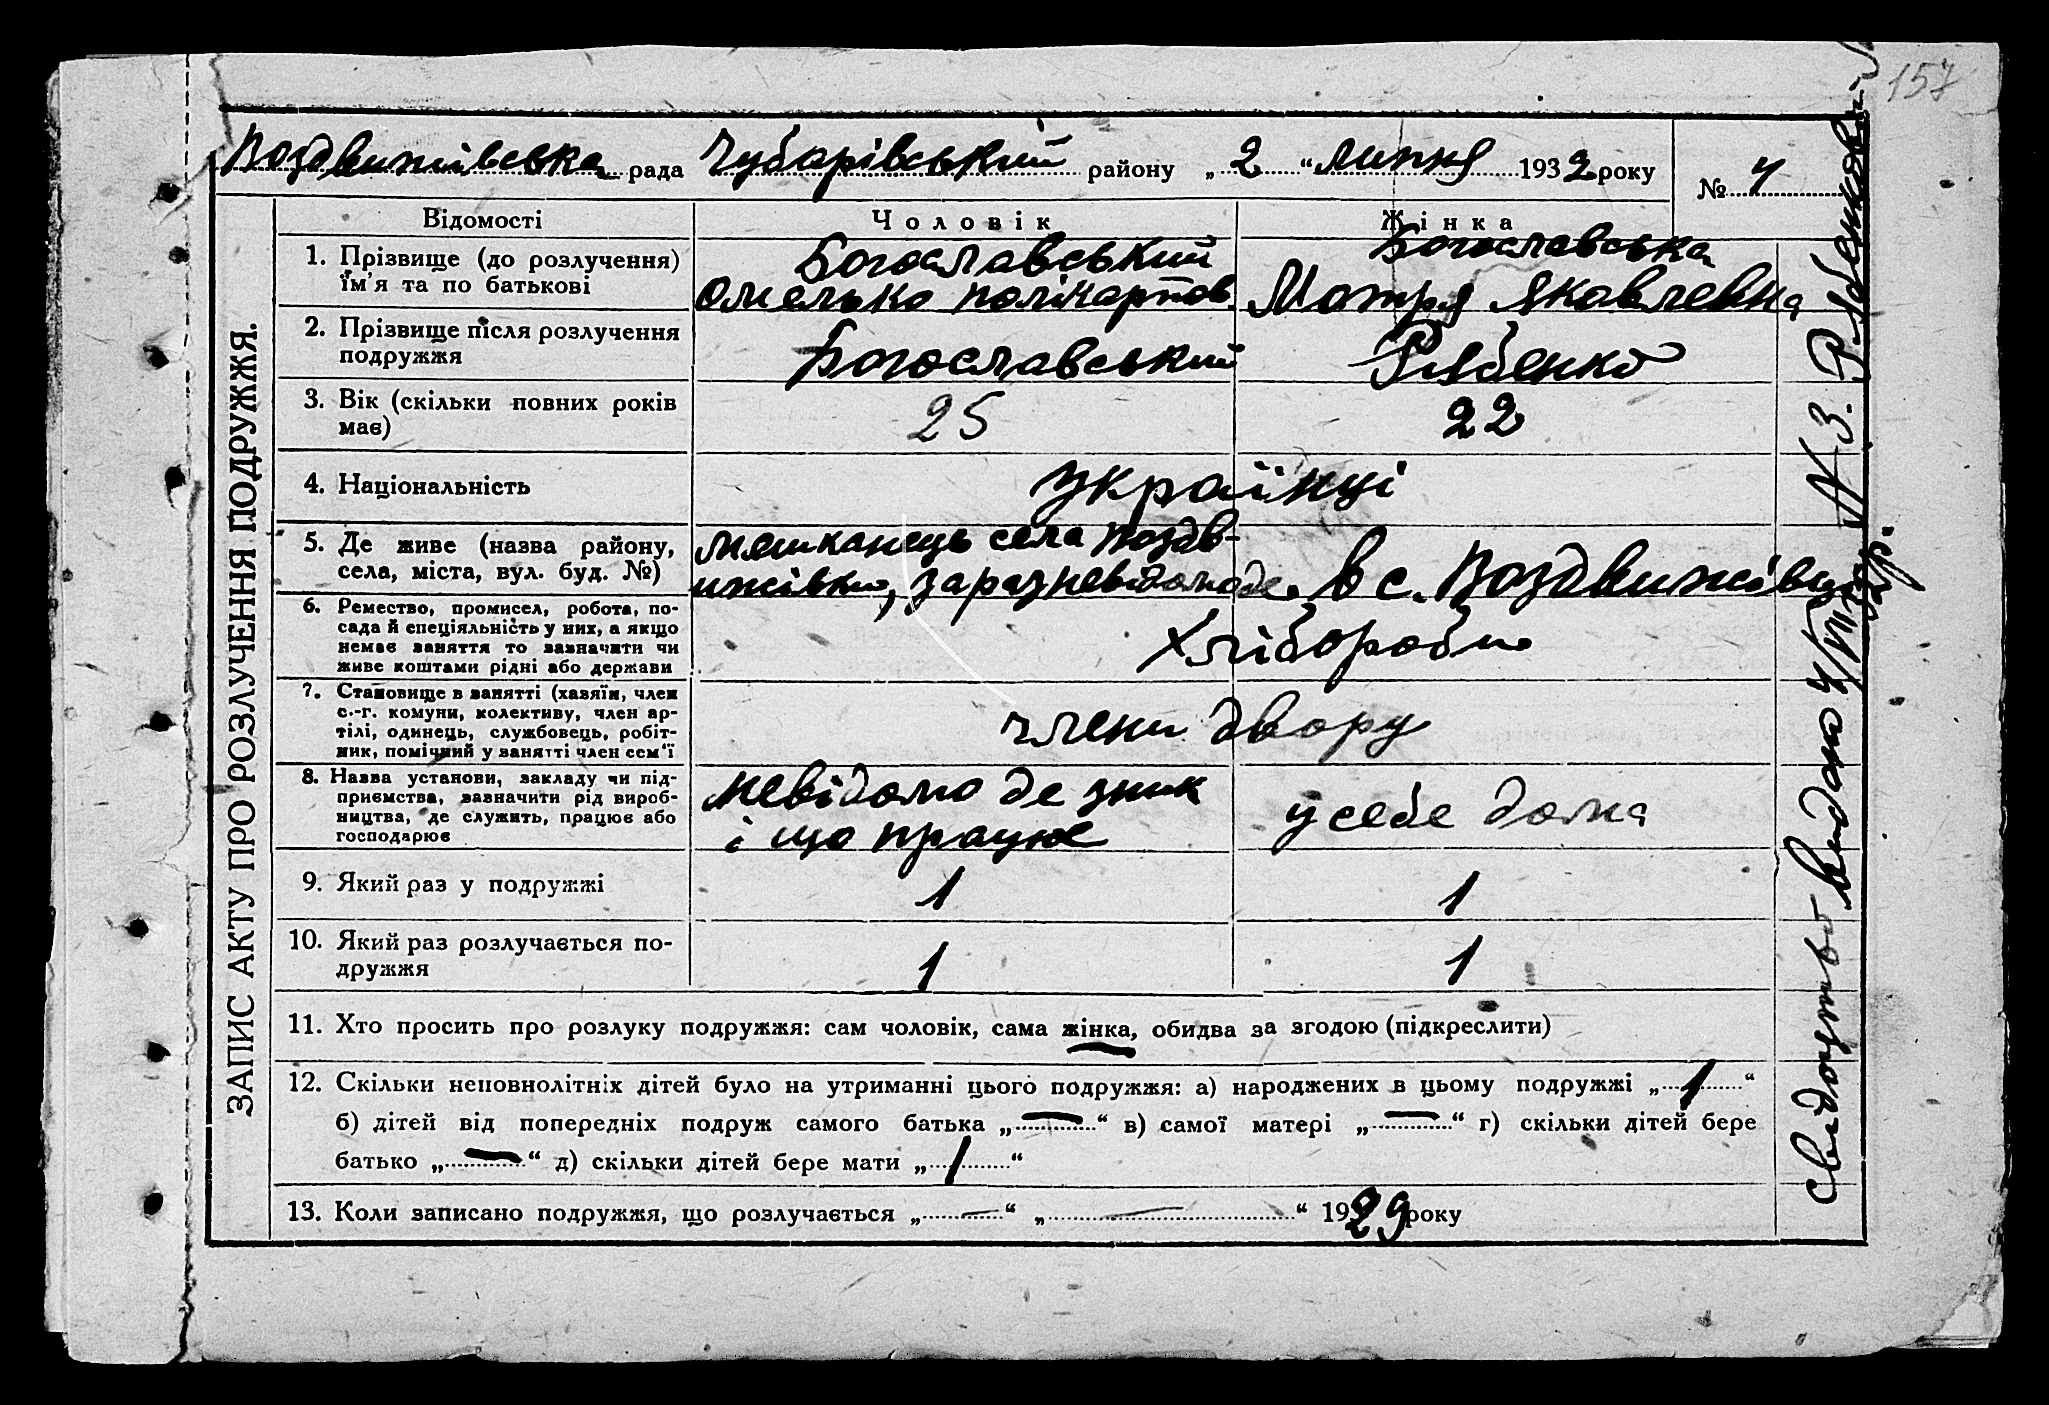 157
Воздвижівська рада Чубарівський району „ 2 “ липня 1932 року № 4
ЗАПИС АКТУ ПРО РОЗЛУЧЕННЯ ПОДРУЖЖЯ.
Відомості Чоловік Жінка
1. Прізвище (до розлучення) їм'я та по батькові
Богославський
Омелько Полікарпов.
Богославська
Мотря Яковлевна
2. Прізвище після розлучення подружжя
Богославський Рябенко
3. Вік (скільки повних років має)
25 22
4. Національність
Українці
5. Де живе (назва району, села, міста, вул. буд. №)
мешканець села Воздв-
ижівки, зараз невідомо де. в с. Воздвижівці
6. Ремество, промисел, робота, по-
сада й спеціяльність у них, а якщо
немає заняття то зазначити чи
живе коштами рідні або держави
Хлібороби
7. Становище в занятті (хазяїн, член
с.-г. комуни, колективу, член ар-
тілі, одинець, службовець, робіт-
ник, помічний у занятті член сем'ї
члени двору
8. Назва установи, закладу чи під-
приємства, зазначити рід вироб-
ництва, де служить, працює або
господарює
невідомо де зник
і що працює
у себе дома
9. Який раз у подружжі 1 1
10. Який раз розлучається по-
дружжя 1 1
11. Хто просить про розлуку подружжя: сам чоловік, сама жінка, обидва за згодою (підкреслити)
12. Скільки неповнолітніх дітей було на утриманні цього подружжя: а) народжених в цьому подружжі „ 1 “
б) дітей від попередніх подруж самого батька „ — “ в) самої матері „ — “ г) скільки дітей бере
батько „ — “ д) скільки дітей бере мати „ 1 “
13. Коли записано подружжя, що розлучається „ — “ „ — “ 1929 року
Свідоцтво видано 4/VIII 32р. № 3. Рябенковій